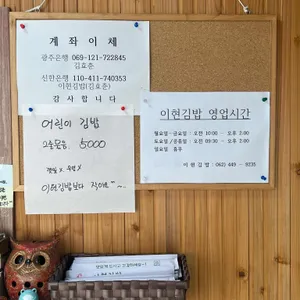 계 좌 이 체
광주은행 069-121-722845
김효춘
신한은행 110-411-740353
이현김밥(김효춘)
감 사 합 니 다
어린이 김밥
2줄묶음 5000
이현김밥보다 작아요~
이현김밥 영업시간
월요일~금요일 : 오전 10:00 - 오후 2:00
토요일/공휴일 : 오전 09:30 - 오후 2:00
일요일 : 휴무
이 현 김 밥 : 062) 449 - 8235